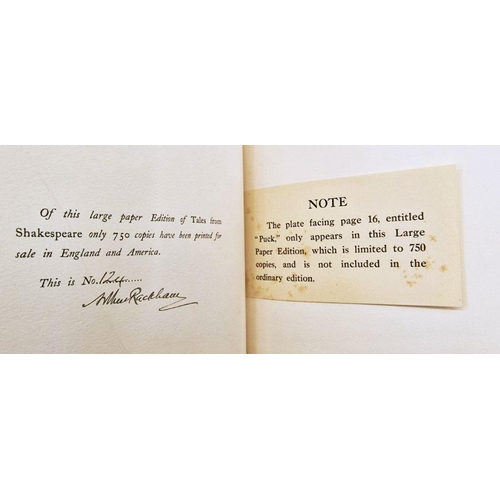 Of this large paper Edition of Tales from
Shakespeare only 750 copies have been printed for
sale in England and America.
This is No. 124......
Arthur Rackham
NOTE
The plate facing page 16, entitled
"Puck," only appears in this Large
Paper Edition, which is limited to 750
copies, and is not included in the
ordinary edition.